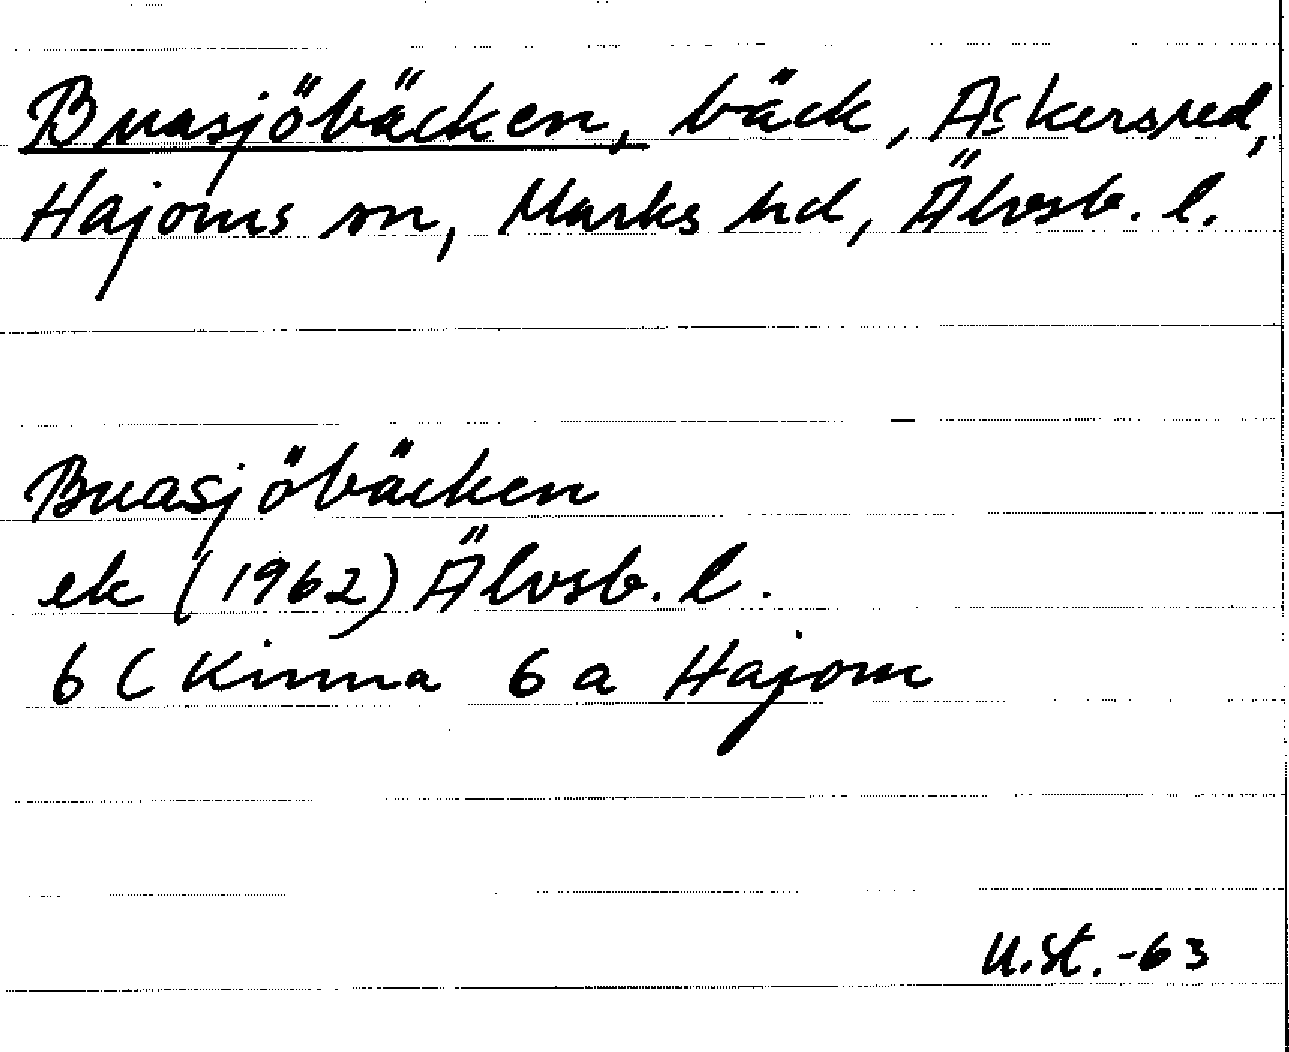 Buasjöbäcken, bäck, Askersred,
Hajoms sn, Marks hd, Älvsb. l.
Buasjöbäcken
ek (1962) Älvsb. l.
6 C Kinna 6 a Hajom
U.St.-63